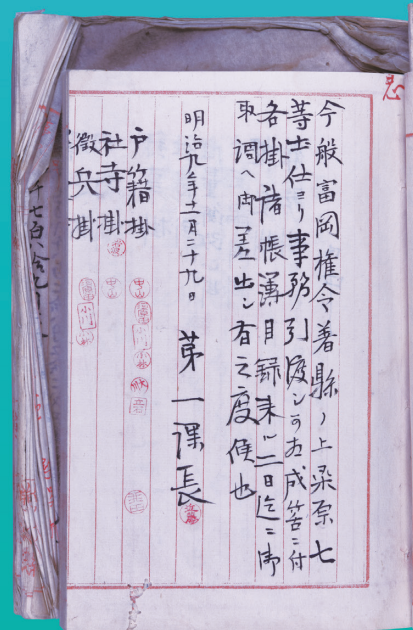 今般富岡権令着縣ノ上桑原七
等出仕ヨリ事務引渡シ可相成筈ニ付
各掛諸帳簿目録来ル二日迄ニ御
取調ヘ御差出シ有之度候也
明治九年十一月二十九日 第一課長
戸籍掛
社寺掛
徴兵掛